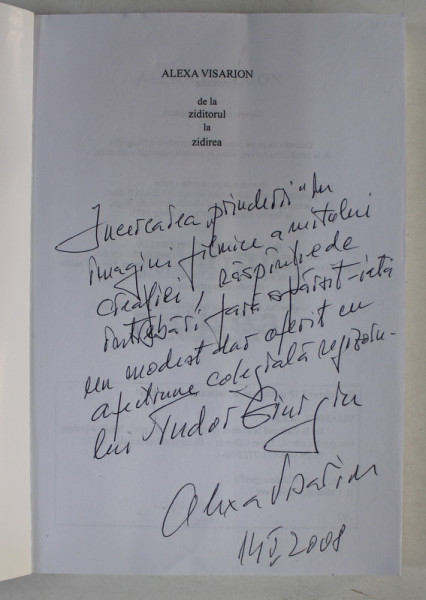 ALEXA VISARION
de la
ziditorul
la
zidirea
Încercarea „prinderii" în
imagini filmice a mitului
creației, răspântie de
întrebări fără sfârșit - iată
un modest dar oferit cu
afecțiune colegială regizoru-
lui Tudor Giurgiu
Alexa Visarion
2008